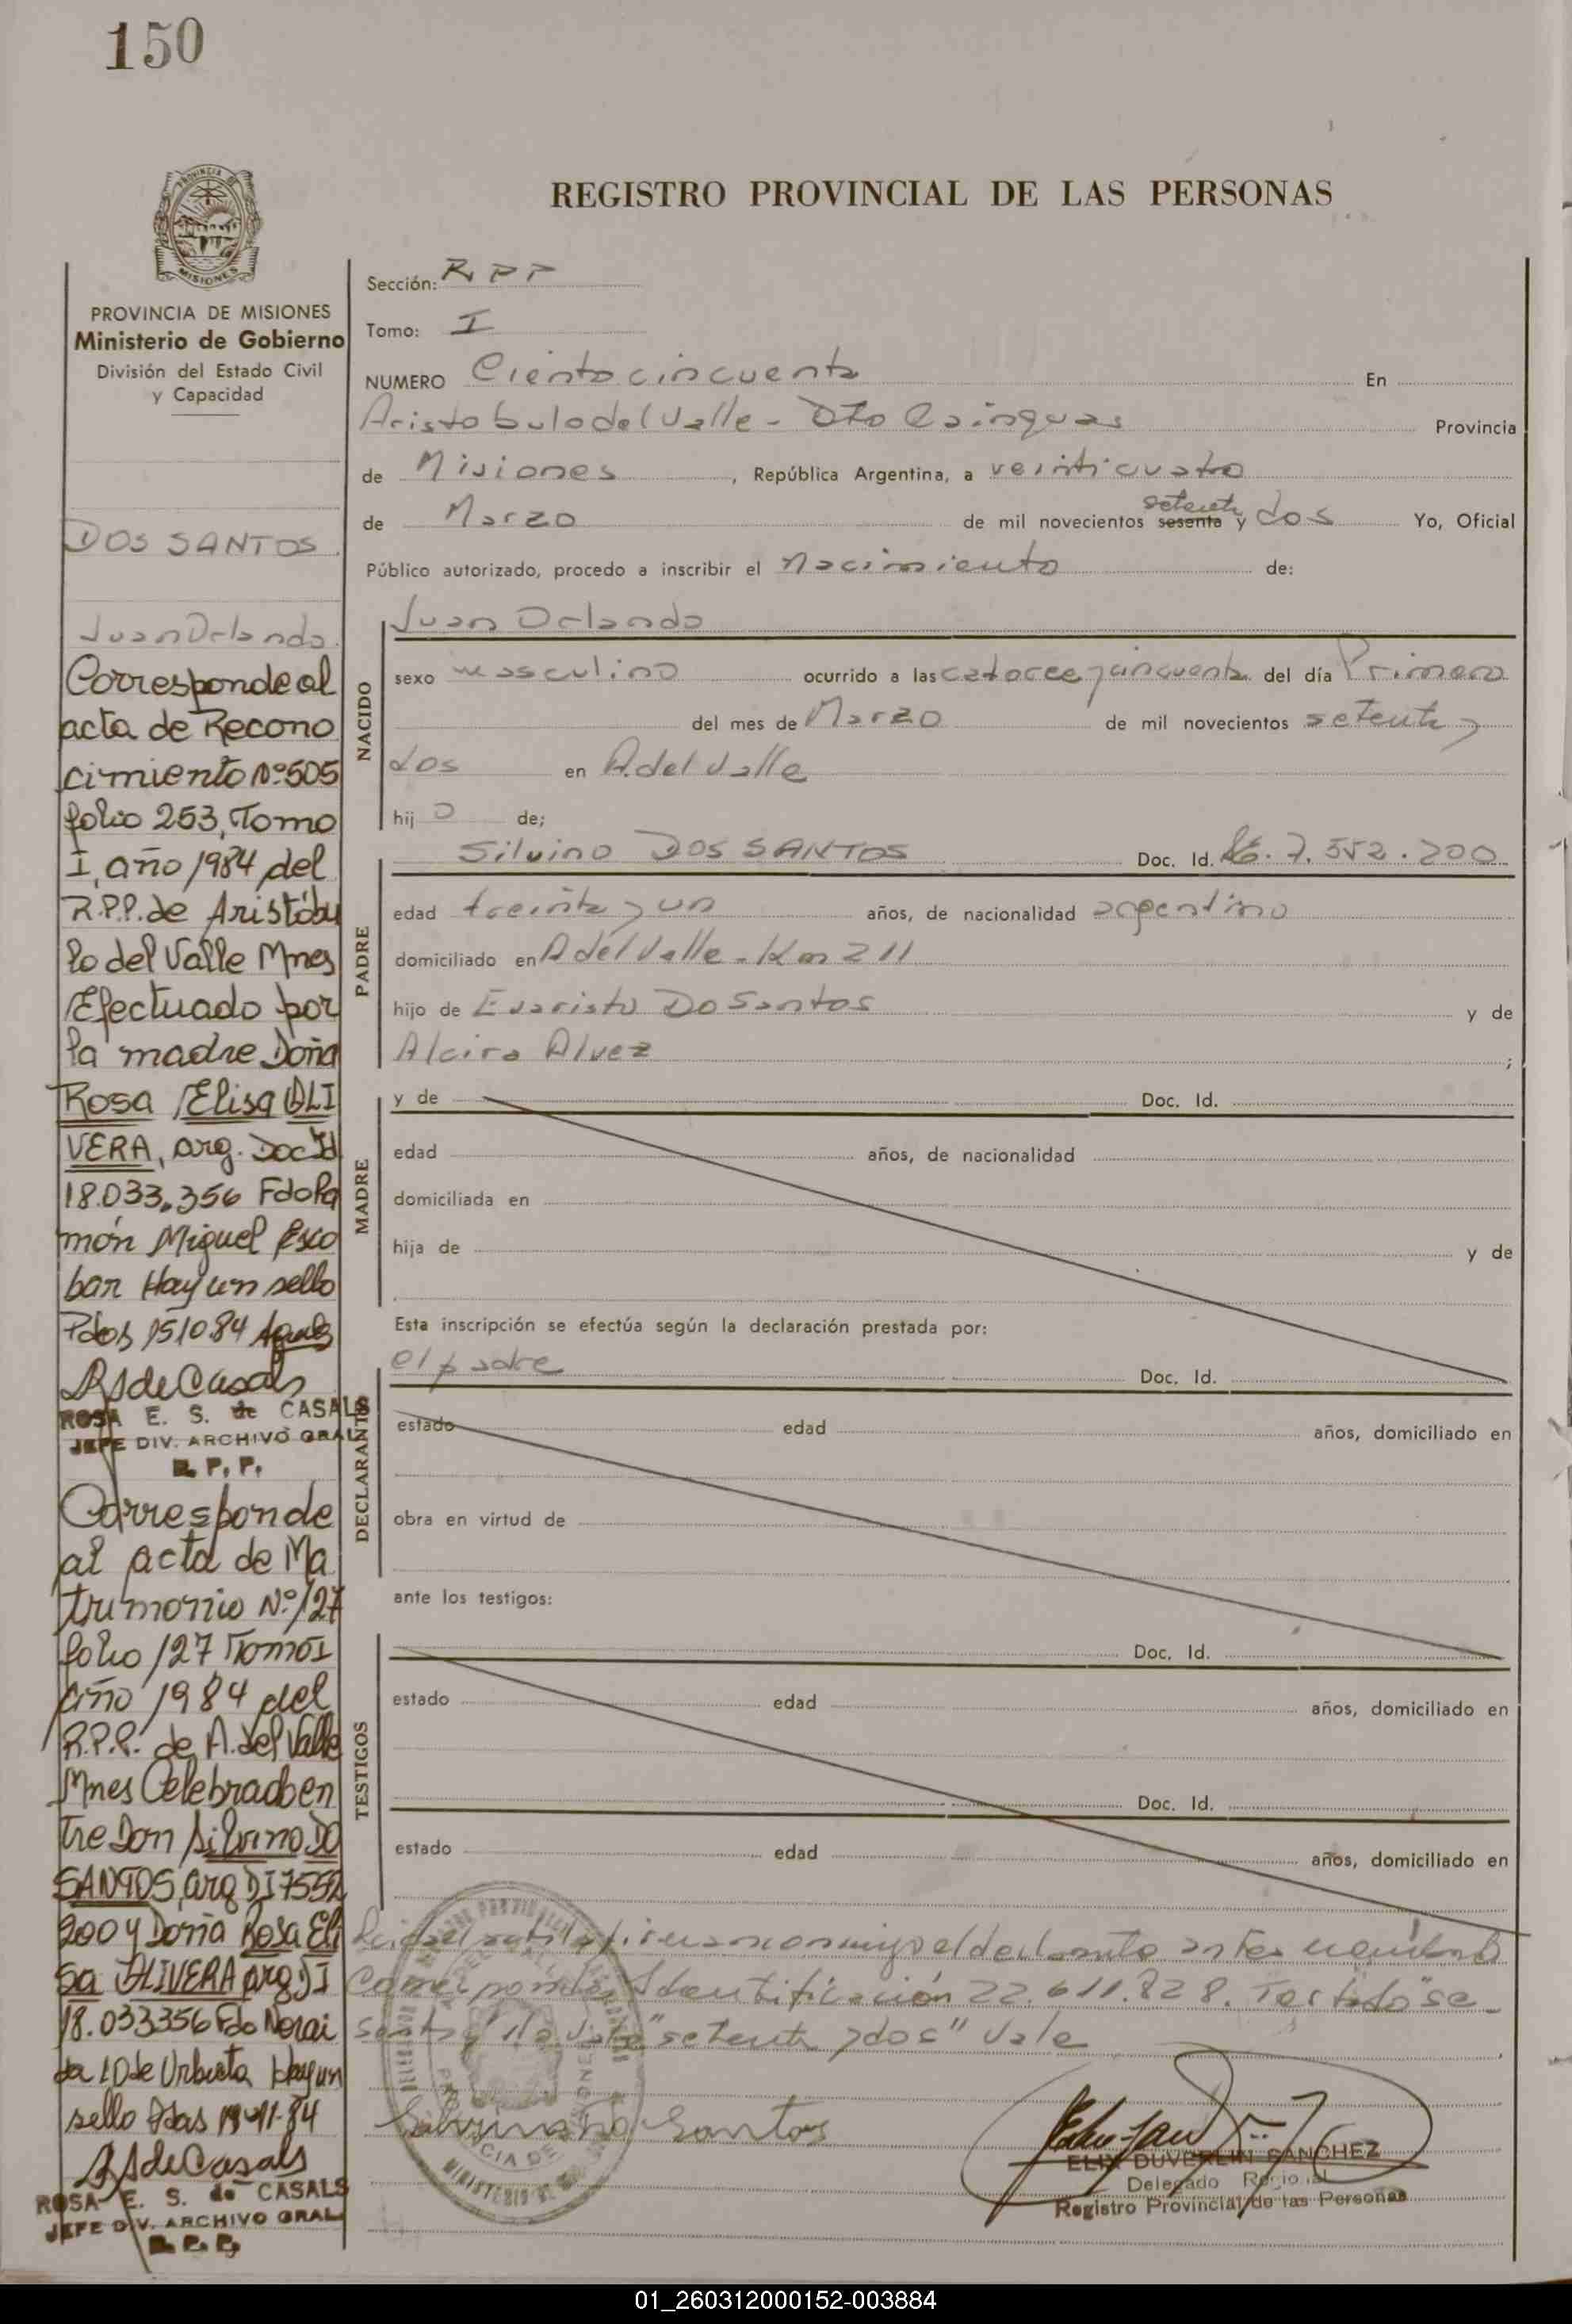 150
REGISTRO PROVINCIAL DE LAS PERSONAS
MISIONES
PROVINCIA DE MISIONES
Ministerio de Gobierno
División del Estado Civil
y Capacidad
DOS SANTOS
Juan Orlando
Corresponde al
acta de Recono
cimiento Nº 505
folio 253, Tomo
I, año 1984 del
R.P.P. de Aristóbu
lo del Valle Mnes
Efectuado por
la madre Doña
Rosa Elisa OLI
VERA, arg. Doc Id
18.033.356 Fdo Ra
món Miguel Esco
bar Hay un sello
Pdos 151084
RSdeCasals
ROSA E. S. de CASALS
JEFE DIV. ARCHIVO GRAL
R. P. P.
Corresponde
al acta de Ma
trimonio Nº 127
folio 127 Tomo I
año 1984 del
R.P.P. de A. del Valle
Mnes Celebrado en
tre Don Silvino DO
SANTOS, arg DI 7552
200 y Doña Rosa Eli
sa OLIVERA arg DI
18.033356 Fdo Norai
da I.D de Urbieta Hay un
sello Pdas 19-11-84
RSdeCasals
ROSA E. S. de CASALS
JEFE DIV. ARCHIVO GRAL
R. P. P.
Sección: R P P
Tomo: I
NUMERO Ciento cincuenta En
Aristobulo del Valle - Dto Cainguas Provincia
de Misiones, República Argentina, a veinticuatro
de Marzo de mil novecientos sesenta setenta y dos Yo, Oficial
Público autorizado, procedo a inscribir el nacimiento de:
NACIDO
Juan Orlando
sexo masculino ocurrido a las catorce y cincuenta del día Primero
del mes de Marzo de mil novecientos setenta y
dos en A. del Valle
hij o de;
PADRE
Silvino DOS SANTOS Doc. Id. LE. 7.552.200
edad treinta y un años, de nacionalidad argentino
domiciliado en A del Valle - Km 211
hijo de Evaristo Do Santos y de
Alcira Alvez ;
MADRE
y de Doc. Id.
edad años, de nacionalidad
domiciliada en
hija de y de
Esta inscripción se efectúa según la declaración prestada por:
DECLARANTE
el padre Doc. Id.
estado edad años, domiciliado en
obra en virtud de
ante los testigos:
TESTIGOS
Doc. Id.
estado edad años, domiciliado en
Doc. Id.
estado edad años, domiciliado en
Leida el acta la firma conmigo el declarante
Identificación 22.611.828. Testado "se
senta" no vale "setenta y dos" Vale
Silvino Do Santos
ELIX DUVERLIN SANCHEZ
Delegado Regional
Registro Provincial de las Personas
01_260312000152-003884